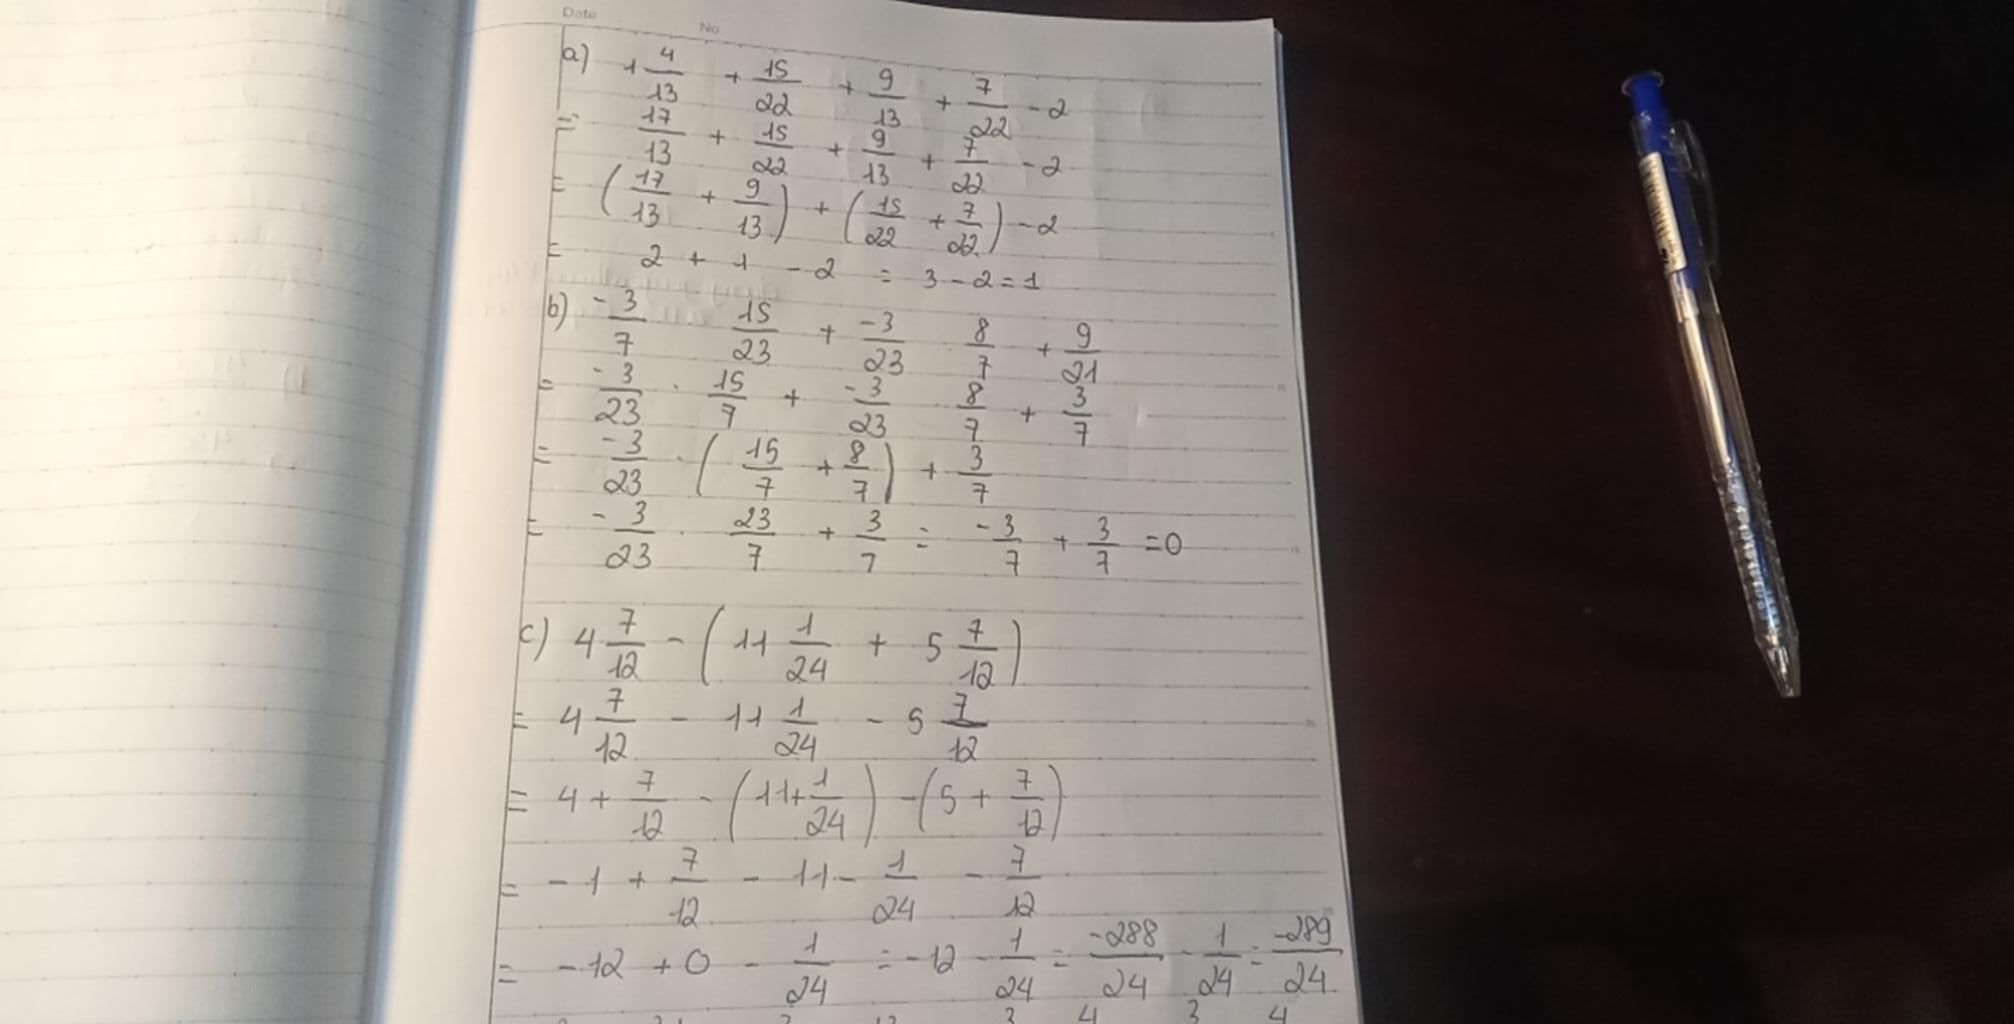 Date
No
a) 1 4/13 + 15/22 + 9/13 + 7/22 - 2
= 17/13 + 15/22 + 9/13 + 7/22 - 2
= (17/13 + 9/13) + (15/22 + 7/22) - 2
= 2 + 1 - 2 = 3 - 2 = 1
b) -3/7 . 15/23 + -3/23 . 8/7 + 9/21
= -3/23 . 15/7 + -3/23 . 8/7 + 3/7
= -3/23 . (15/7 + 8/7) + 3/7
= -3/23 . 23/7 + 3/7 = -3/7 + 3/7 = 0
c) 4 7/12 - (11 1/24 + 5 7/12)
= 4 7/12 - 11 1/24 - 5 7/12
= 4 + 7/12 - (11 + 1/24) - (5 + 7/12)
= -1 + 7/12 - 11 - 1/24 - 7/12
= -12 + 0 - 1/24 = -12 - 1/24 = -288/24 - 1/24 = -289/24